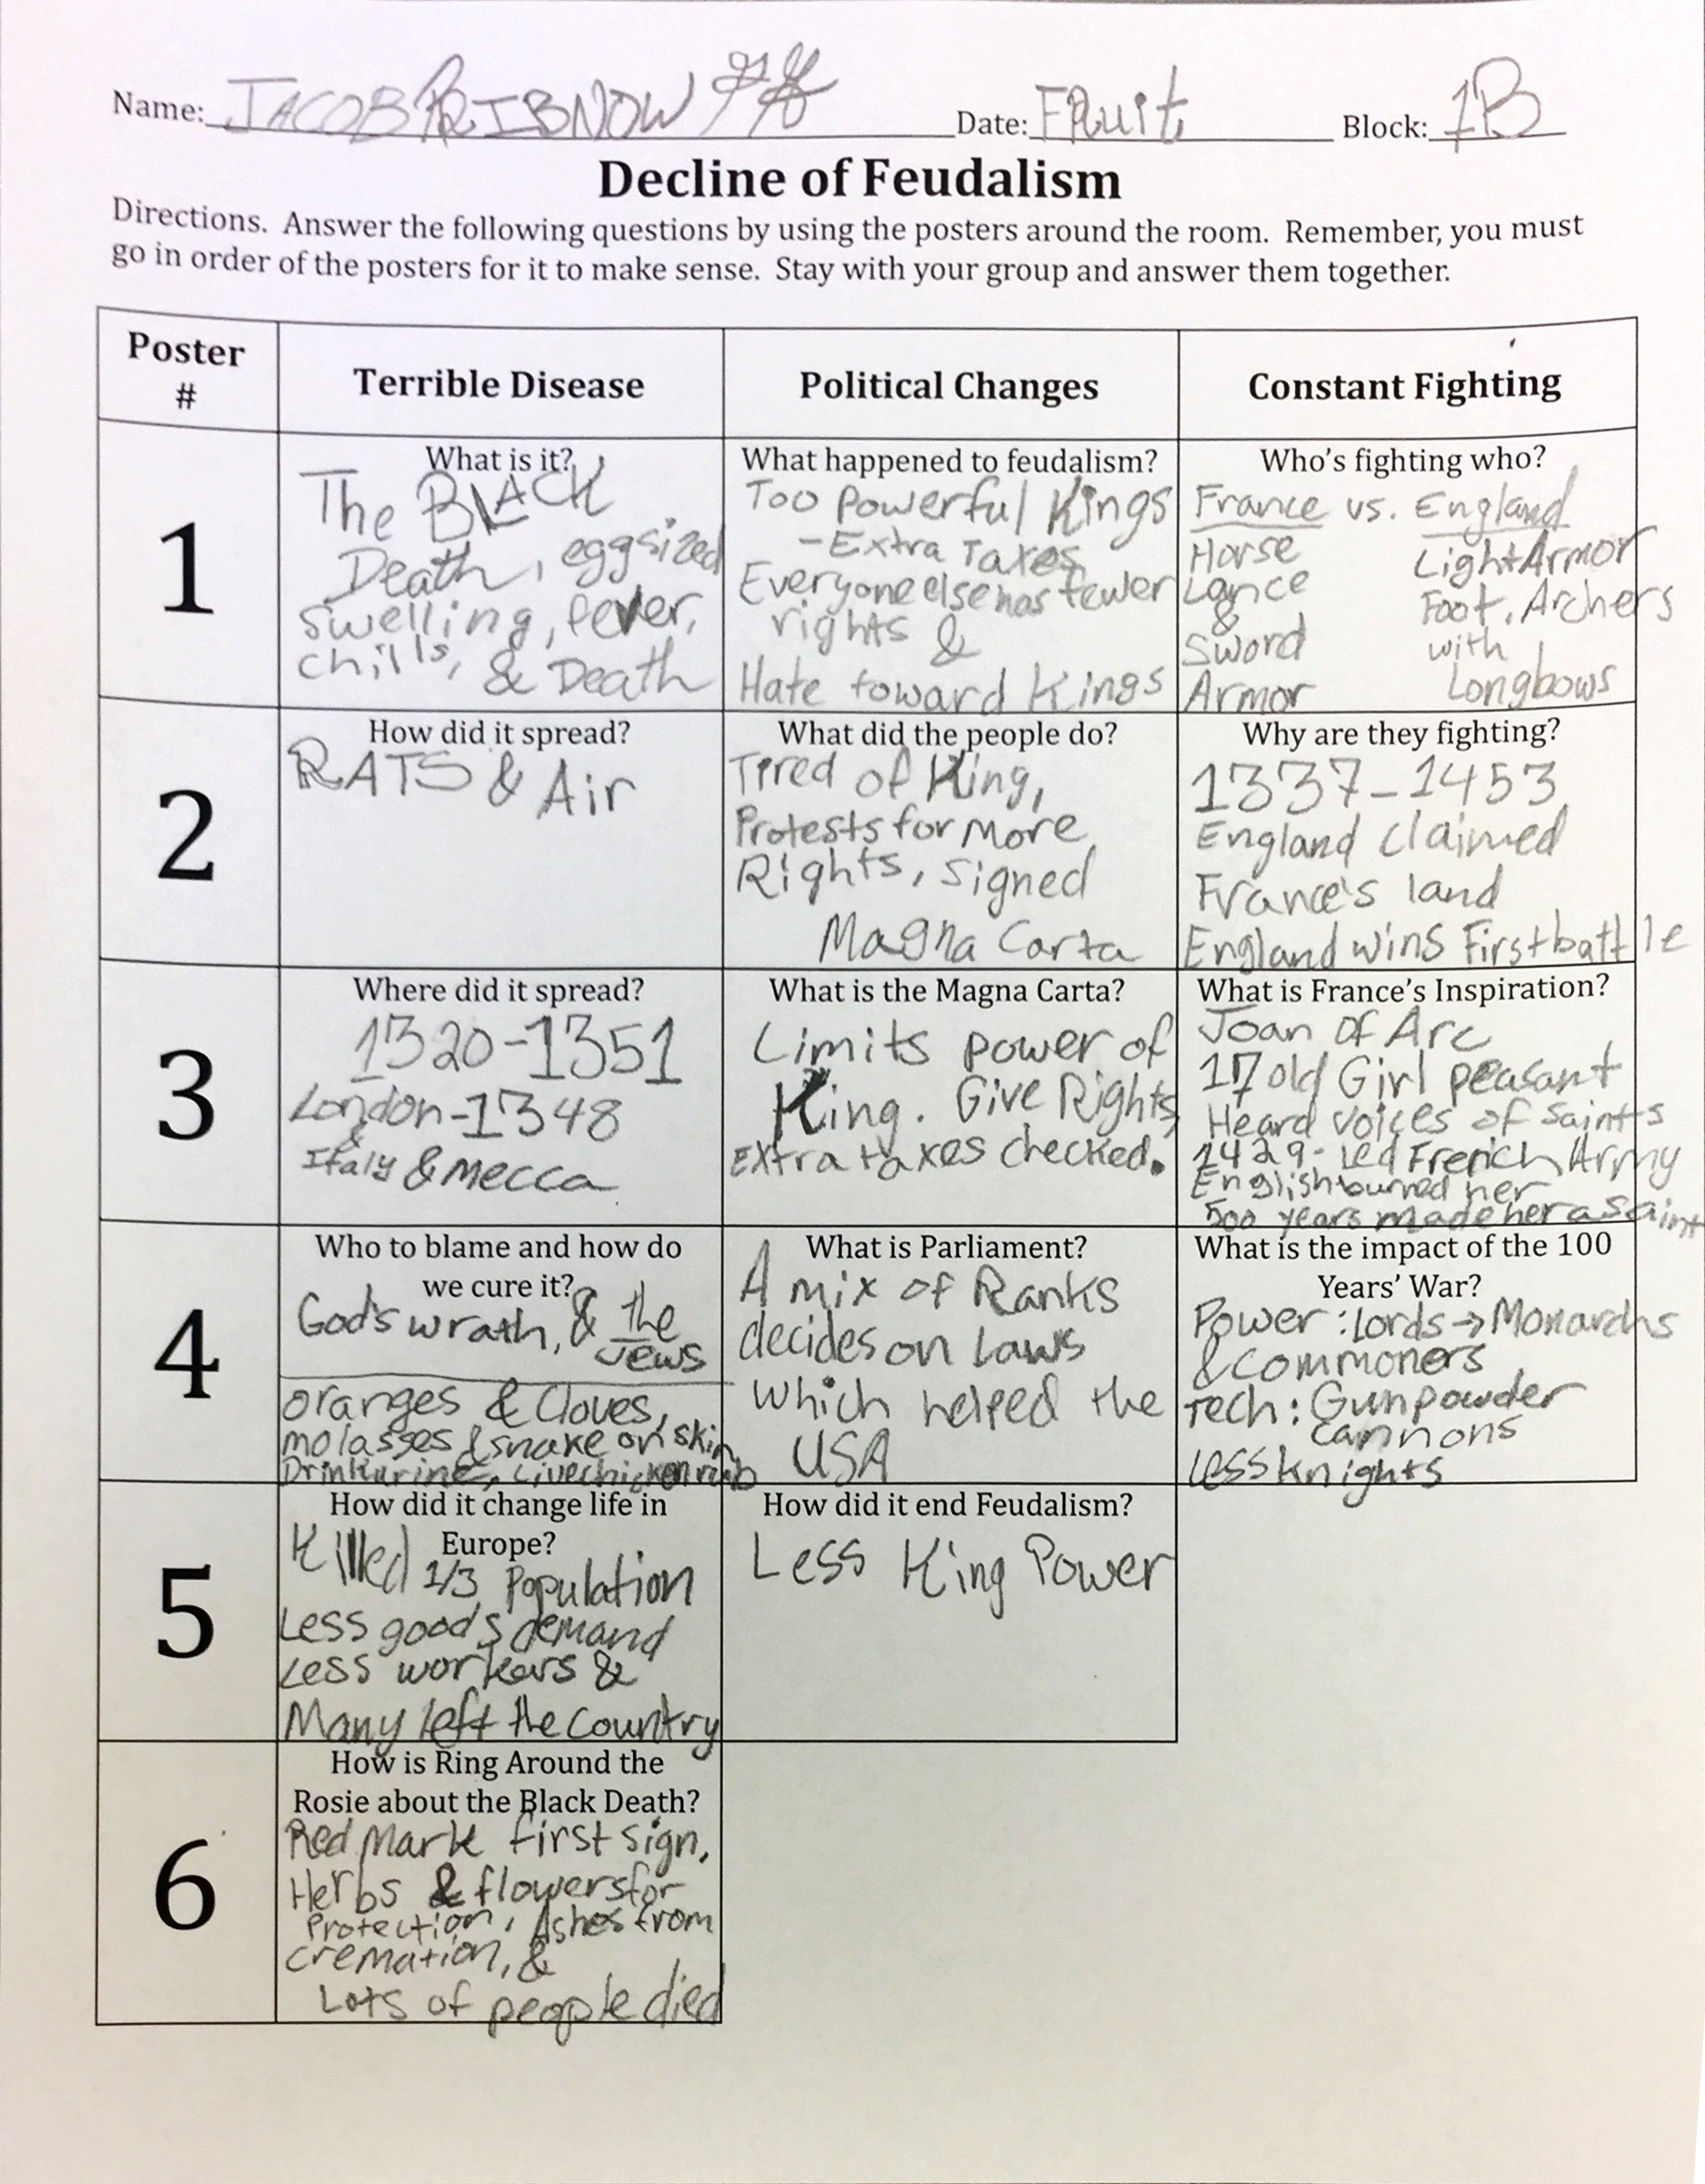 Name: JACOB PRIBNOW Date: FRuit Block: 1B
Decline of Feudalism
Directions. Answer the following questions by using the posters around the room. Remember, you must
go in order of the posters for it to make sense. Stay with your group and answer them together.
Poster
#
Terrible Disease
Political Changes
Constant Fighting
1
What is it?
The BLACK
Death, eggsized
swelling, fever,
chills, & Death
What happened to feudalism?
Too Powerful Kings
-Extra Taxes
Everyone else has fewer
rights &
Hate toward Kings
Who's fighting who?
France vs. England
Horse Light Armor
Lance Foot, Archers
& with
Sword Longbows
Armor
2
How did it spread?
RATS & Air
What did the people do?
Tired of King,
Protests for More
Rights, signed
Magna Carta
Why are they fighting?
1337-1453
England claimed
France's land
England wins First battle
3
Where did it spread?
1320-1351
London-1348
&
Italy & Mecca
What is the Magna Carta?
Limits power of
King. Give Rights
Extra taxes checked.
What is France's Inspiration?
Joan of Arc
17 old Girl peasant
Heard voices of saints
1429- Led French Army
English burned her
500 years made her a Saint
4
Who to blame and how do
we cure it?
God's wrath, & the
Jews
oranges & Cloves,
molasses & snake on skin
Drink urine, Live chicken rub
What is Parliament?
A mix of Ranks
decides on Laws
which helped the
USA
What is the impact of the 100
Years' War?
Power: Lords → Monarchs
& commoners
Tech: Gunpowder
cannons
Less knights
5
How did it change life in
Europe?
Killed 1/3 Population
Less goods demand
Less workers &
Many left the Country
How did it end Feudalism?
Less King Power
6
How is Ring Around the
Rosie about the Black Death?
Red Mark first sign,
Herbs & flowers for
Protection, Ashes from
cremation, &
Lots of people died